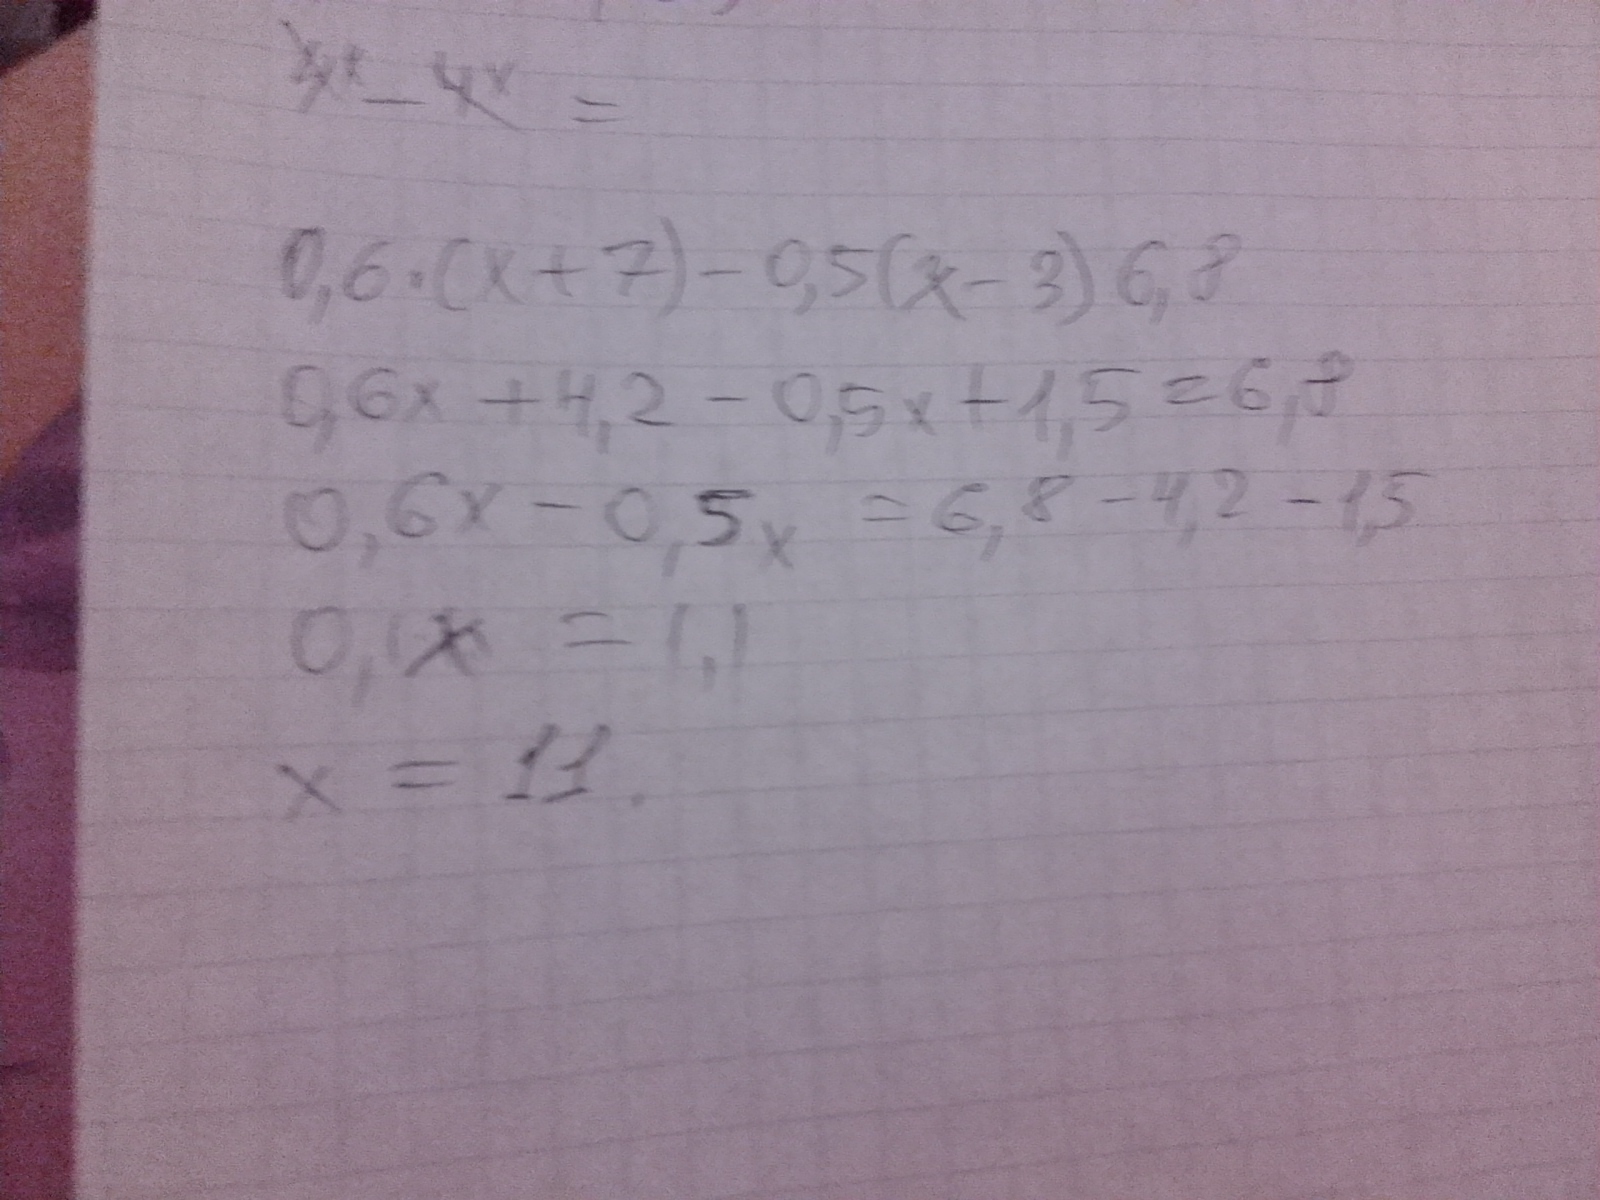 0,6·(x+7)-0,5(x-3)6,8
0,6x+4,2-0,5x+1,5=6,8
0,6x-0,5x=6,8-4,2-1,5
0,1x=1,1
x=11.